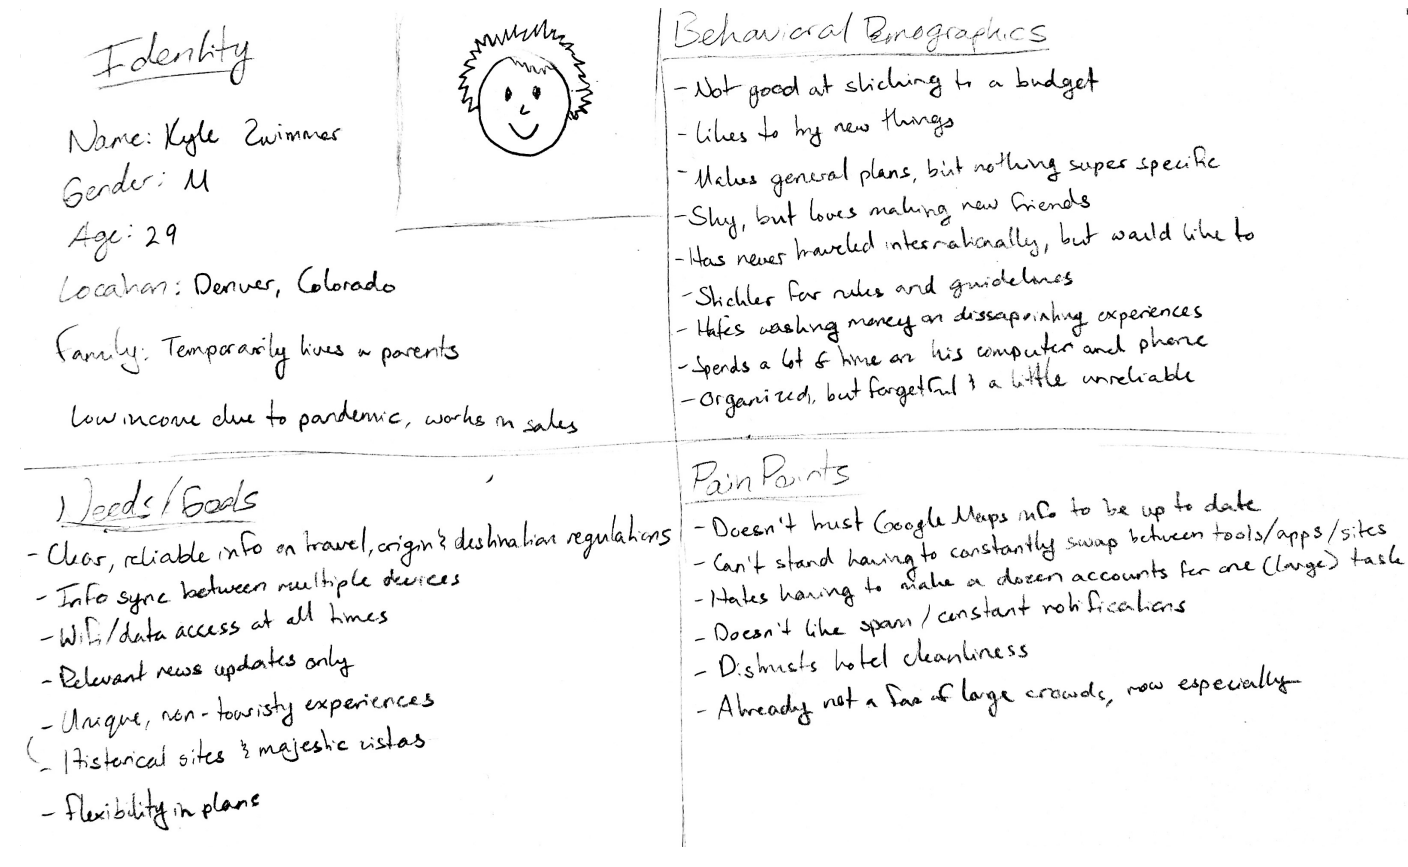 Identity
Name: Kyle Zwimmer
Gender: M
Age: 29
Location: Denver, Colorado
Family: Temporarily lives w parents
Low income due to pandemic, works in sales
Behavioral Demographics
- Not good at sticking to a budget
- Likes to try new things
- Makes general plans, but nothing super specific
- Shy, but loves making new friends
- Has never traveled internationally, but would like to
- Stickler for rules and guidelines
- Hates wasting money on dissapointing experiences
- Spends a lot of time on his computer and phone
- Organized, but forgetful & a little unreliable
Needs/Goals
- Clear, reliable info on travel, origin & destination regulations
- Info sync between multiple devices
- Wifi/data access at all times
- Relevant news updates only
- Unique, non-touristy experiences
- Historical sites & majestic vistas
- Flexibility in plans
Pain Points
- Doesn't trust Google Maps info to be up to date
- Can't stand having to constantly swap between tools/apps/sites
- Hates having to make a dozen accounts for one (large) task
- Doesn't like spam/constant notifications
- Distrusts hotel cleanliness
- Already not a fan of large crowds, now especially